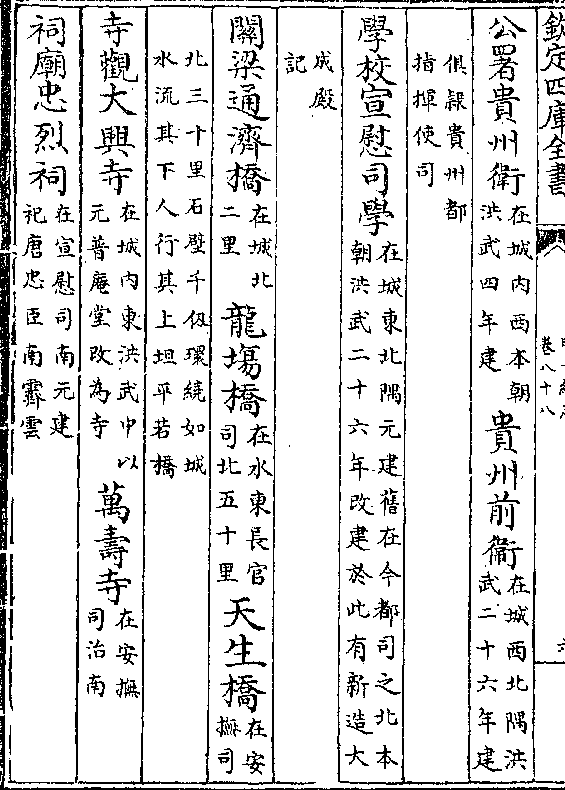 欽定四庫全書
卷八十八
公署貴州衛在城内西本朝洪武四年建 貴州前衛在城西北隅洪武二十六年建
俱隸貴州都指揮使司
學校宣慰司學在城東北隅元建舊在今都司之北本朝洪武二十六年改建於此有新造大
成殿記
關梁通濟橋在城北二里 龍場橋在水東長官司北五十里 天生橋在安撫司
北三十里石壁千仞環繞如城水流其下人行其上坦平若橋
寺觀大興寺在城内東洪武中以元普庵堂改為寺 萬壽寺在安撫司治南
祠廟忠烈祠在宣慰司南元建祀唐忠臣南霽雲